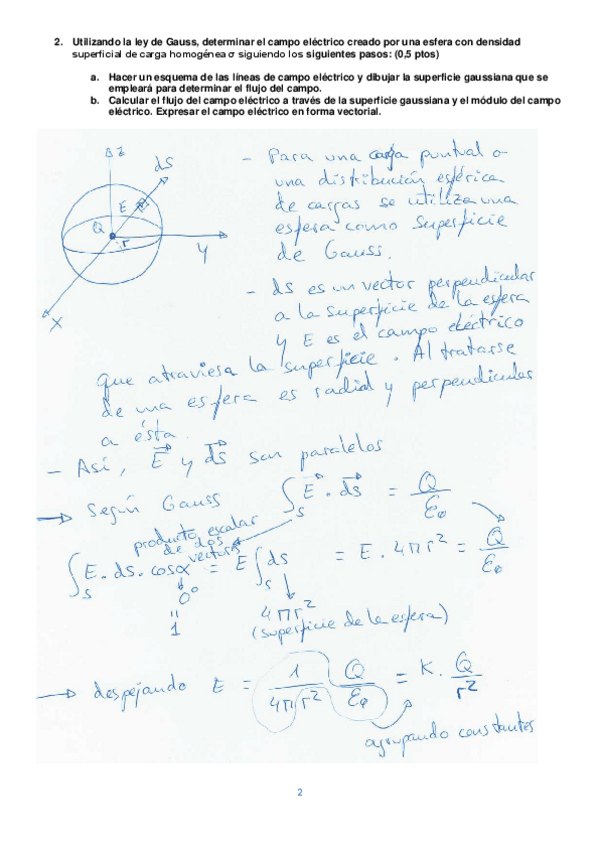 2. Utilizando la ley de Gauss, determinar el campo eléctrico creado por una esfera con densidad
superficial de carga homogénea σ siguiendo los siguientes pasos: (0,5 ptos)
a. Hacer un esquema de las líneas de campo eléctrico y dibujar la superficie gaussiana que se
empleará para determinar el flujo del campo.
b. Calcular el flujo del campo eléctrico a través de la superficie gaussiana y el módulo del campo
eléctrico. Expresar el campo eléctrico en forma vectorial.
Z
ds
E
Q
r
Y
X
- Para una carga puntual o
una distribución esférica
de cargas se utiliza una
esfera como superficie
de Gauss.
- ds es un vector perpendicular
a la superficie de la esfera
y E es el campo eléctrico
que atraviesa la superficie. Al tratarse
de una esfera es radial y perpendicular
a ésta.
- Así, E⃗ y ds⃗ son paralelos
→ Según Gauss ∫s E⃗ · ds⃗ = Q/ε₀
producto escalar
de dos
vectores
∫s E · ds · cosα = E ∫s ds = E · 4πr² = Q/ε₀
0º
"
1
4πr²
(superficie de la esfera)
→ despejando E = 1/4πr² Q/ε₀ = K · Q/r²
agrupando constantes
2